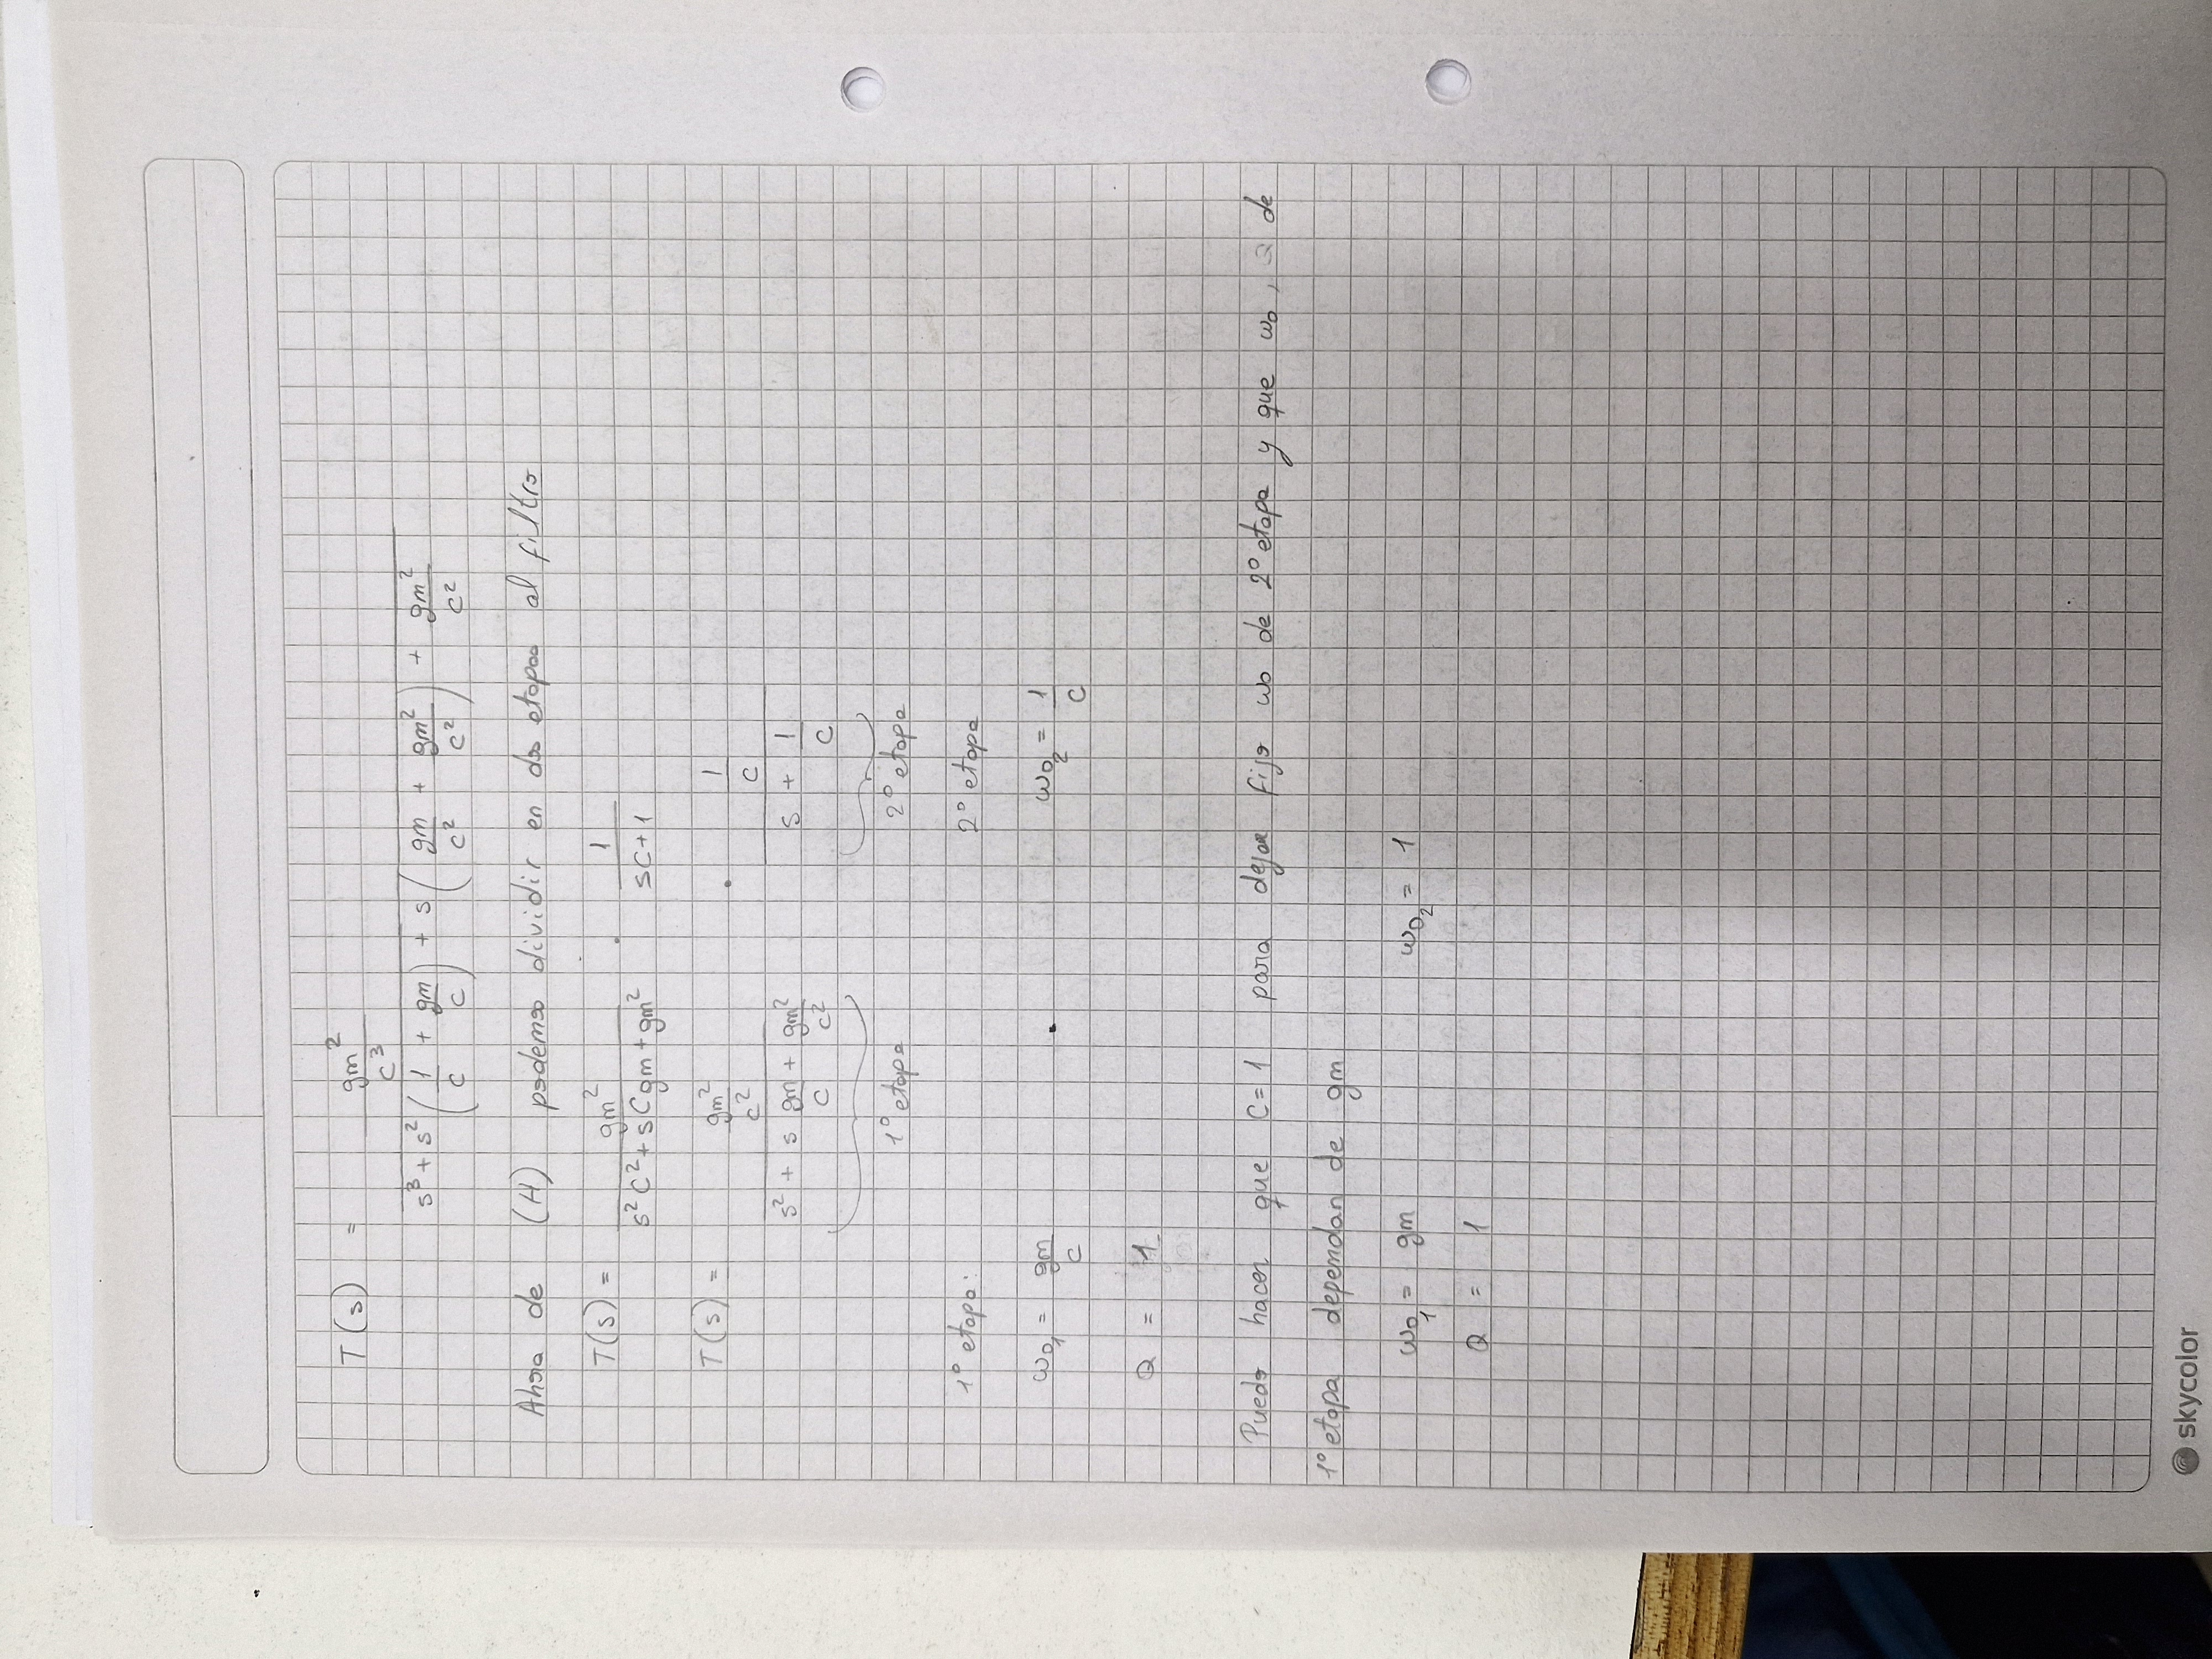 T(s) = gm²/C³ / (s³ + s² (1/C + gm/C) + s (gm/C² + gm²/C²) + gm²/C²)
Ahora de (H) podemos dividir en dos etapas al filtro
T(s) = gm² / (s²C² + sCgm + gm²) · 1 / (sC + 1)
T(s) = (gm²/C²) / (s² + s gm/C + gm²/C²) · (1/C) / (s + 1/C)
1º etapa 2º etapa
1º etapa: 2º etapa
ω₀₁ = gm/C ω₀₂ = 1/C
Q = 1
Puedo hacer que C=1 para dejar fijo ω₀ de 2º etapa y que ω₀, Q de
1º etapa dependan de gm
ω₀₁ = gm ω₀₂ = 1
Q = 1
skycolor